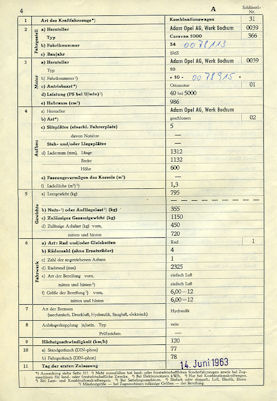 4 A
1 Art des Kraftfahrzeugs*) Kombinationswagen 31
2 a) Hersteller Adam Opel AG, Werk Bochum 0039
Typ Caravan 1000 366
b) Fabriknummer 54 0078113
c) Baujahr
3 a) Hersteller Adam Opel AG, Werk Bochum 0039
Typ 10
b) Fabriknummer - 10 - 0078915 *
c) Antriebsart Ottomotor 01
d) Leistung (PS bei U/min) 40 bei 5000
e) Hubraum (cm³) 986
4 a) Hersteller Adam Opel AG, Werk Bochum 0039
b) Art geschlossen 02
c) Sitzplätze (einschl. Fahrerplatz) 5
davon Notsitze —
Steh- und/oder Liegeplätze —
d) Laderaum (mm), Länge 1312
Breite 1132
Höhe 600
e) Fassungsvermögen des Kessels (m³) —
f) Ladefläche (m²) 1,3
5 a) Leergewicht (kg) 795
b) Nutz- oder Aufliegelast (kg) 355
c) Zulässiges Gesamtgewicht (kg) 1150
d) Zulässige Achslast (kg) vorn 450
mitten und hinten 720
6 a) Art: Rad und/oder Gleisketten Rad 1
b) Räderzahl (ohne Ersatzräder) 4
c) Zahl der angetriebenen Achsen 1
d) Radstand (mm) 2325
e) Art der Bereifung vorn einfach Luft
mitten und hinten einfach Luft
f) Größe der Bereifung vorn 6,00—12
mitten und hinten 6,00—12
7 Art der Bremsen Hydraulik
(mechanisch, Druckluft, Hydraulik, Saugluft, elektrisch)
8 Anhängerkupplung ja/nein Typ nein
Prüfzeichen —
9 Höchstgeschwindigkeit (km/h) 120
10 a) Standgeräusch (DIN-phon) 77
b) Fahrgeräusch (DIN-phon) 78
11 Tag der ersten Zulassung 14. Juni 1963